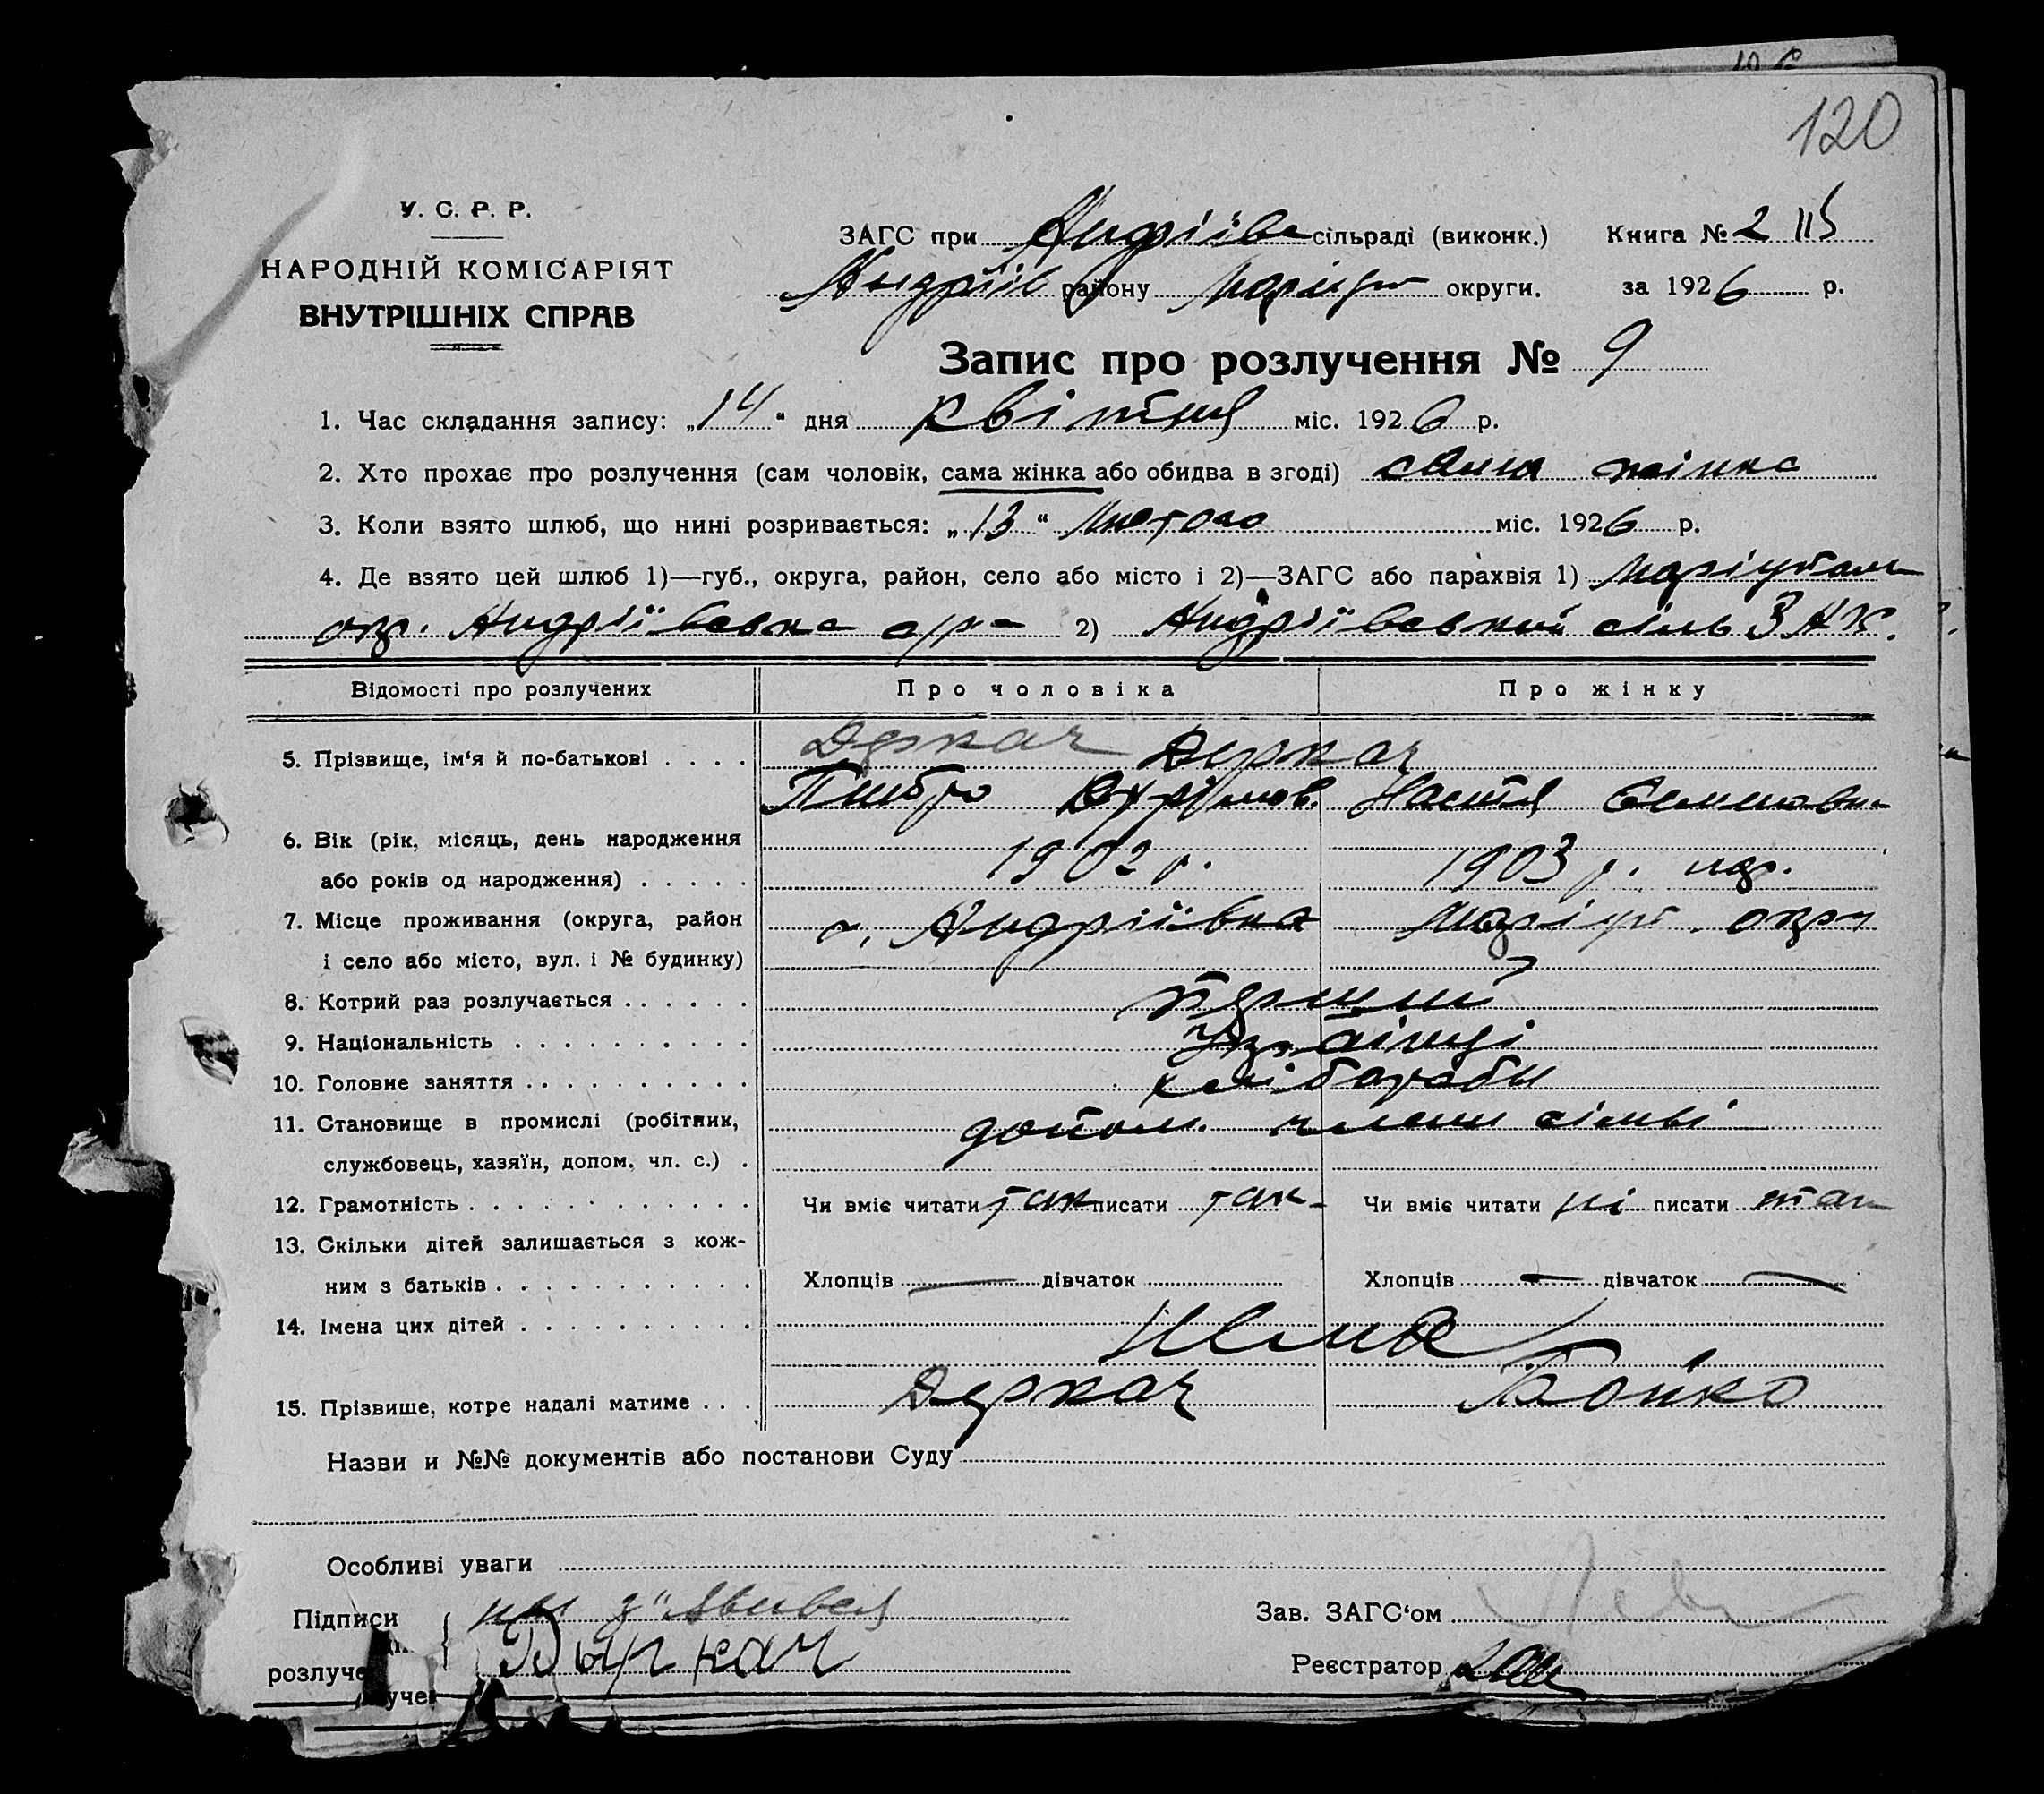 120
У. С. Р. Р.
НАРОДНІЙ КОМІСАРІЯТ
ВНУТРІШНІХ СПРАВ
ЗАГС при Андріївс сільраді (виконк.) Книга № 2
Андріїв району округи. за 1926 р.
Запис про розлучення № 9
1. Час складання запису: „14“ дня квітня міс. 1926 р.
2. Хто прохає про розлучення (сам чоловік, сама жінка або обидва в згоді) сама жінка
3. Коли взято шлюб, що нині розривається: „13“ Лютого міс. 1926 р.
4. Де взято цей шлюб 1)—губ., округа, район, село або місто і 2)—ЗАГС або парахвія 1)
окр. Андріївська с/р 2) Андріївський сіль ЗАГС.
Відомості про розлучених Про чоловіка Про жінку
5. Прізвище, ім‘я й по-батькові . . . . Деркач Деркач
Настя Семеновна
6. Вік (рік, місяць, день народження
або років од народження) . . . . . 1902 р. 1903 р.
7. Місце проживання (округа, район с. Андріївка Маріуп. окр
і село або місто, вул. і № будинку)
8. Котрий раз розлучається . . . . . . перший
9. Національність . . . . . . . . . . Українці
10. Головне заняття . . . . . . . . . . хлібороби
11. Становище в промислі (робітник, допом. члени сімьі
службовець, хазяїн, допом. чл. с.) .
12. Грамотність . . . . . . . . . . . . Чи вміє читати так писати так Чи вміє читати ні писати
13. Скільки дітей залишається з кож-
ним з батьків . . . . . . . . . . . Хлопців — дівчаток Хлопців — дівчаток —
14. Імена цих дітей . . . . . . . . . . Нема
15. Прізвише, котре надалі матиме . . . Деркач Бойко
Назви и №№ документів або постанови Суду
Особливі уваги
Підписи не з"явився Зав. ЗАГС‘ом
розлуче Выркач Реєстратор